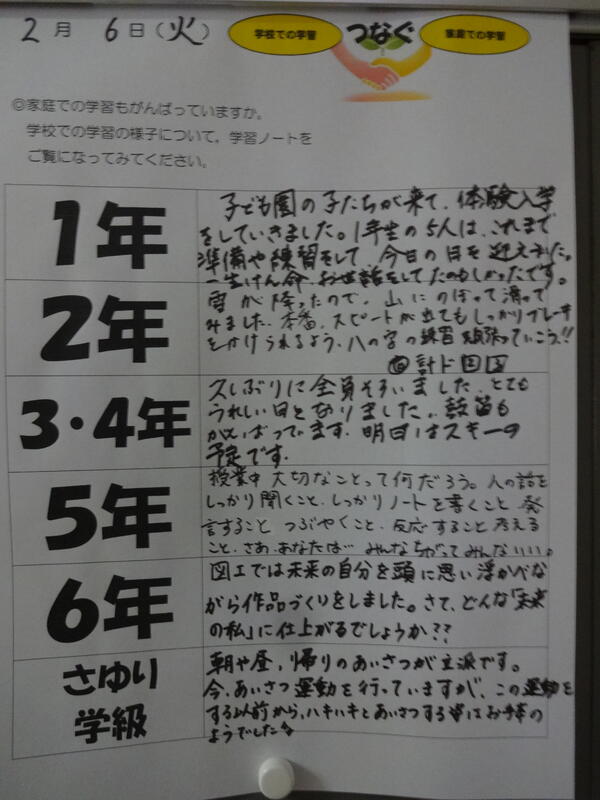 2月 6日(火)
学校での学習
つなぐ
家庭での学習
◎家庭での学習もがんばっていますか。
学校での学習の様子について，学習ノートを
ご覧になってみてください。
1年
子ども園の子たちが来て、体験入学
をしていきました。1年生の5人は、これまで
準備や練習をして、今日の日を迎えました。
一生けん命、お世話をしてたのもしかったです。
2年
雪が降ったので、山にのぼって滑って
みました。本番、スピートが出てもしっかりブレーキ
をかけられるよう、八の字の練習頑張っていこう!!
計ド
3・4年
久しぶりに全員そろいました。とても
うれしい日となりました。鼓笛も
がんばってます。明日はスキーの
予定です。
5年
授業中大切なことって何だろう。人の話を
しっかり聞くこと、しっかりノートを書くこと 発
言すること つぶやくこと・反応すること 考える
こと・さあ、あなたは… みんなちがってみんないい。
6年
図工では未来の自分を頭に思い浮かべな
がら作品づくりをしました。さて、どんな「未来
の私」に仕上がるでしょうか??
さゆり
学級
朝や昼、帰りのあいさつが立派です。
今、あいさつ運動を行っていますが、この運動を
する以前から、ハキハキとあいさつする姿はお手本の
ようでした